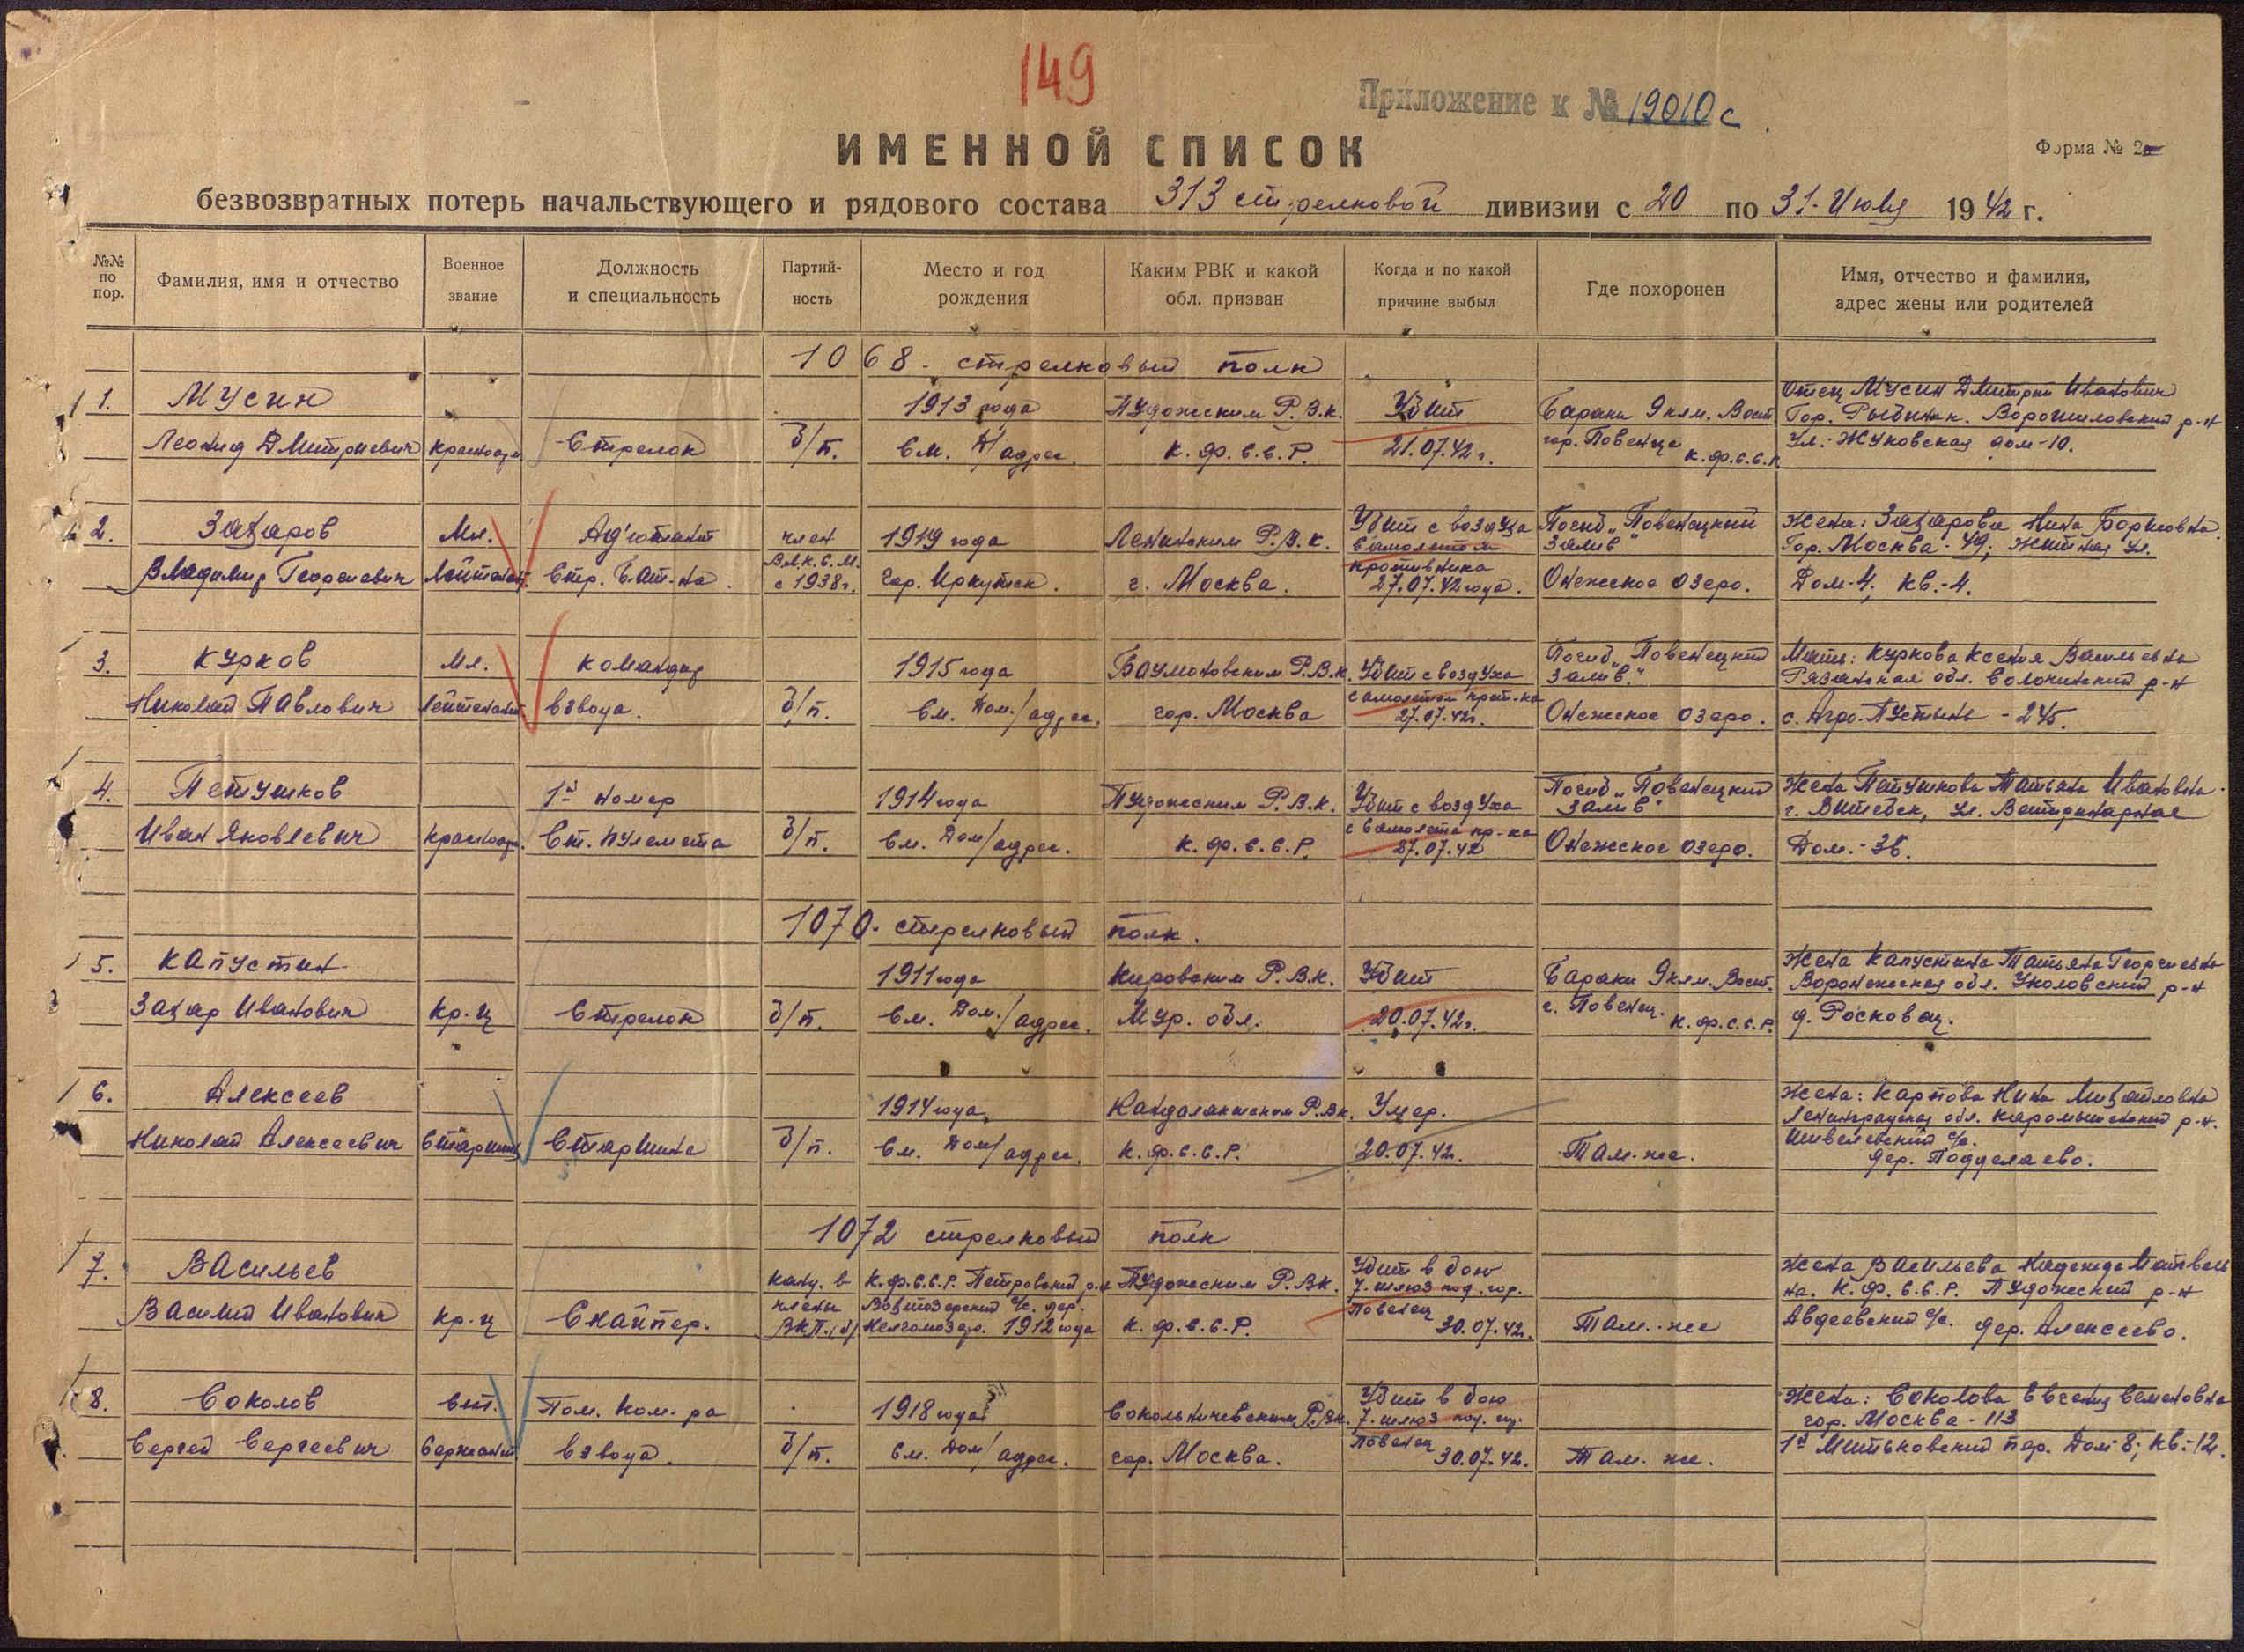 149
Приложение к № 19010с
ИМЕННОЙ СПИСОК
Форма № 2
безвозвратных потерь начальствующего и рядового состава 313 стрелковой дивизии с 20 по 31 Июля 1942 г.
№№ по пор.
Фамилия, имя и отчество
Военное звание
Должность и специальность
Партийность
Место и год рождения
Каким РВК и какой обл. призван
Когда и по какой причине выбыл
Где похоронен
Имя, отчество и фамилия, адрес жены или родителей
1068 - стрелковый полк
1. Мусин 1913 года Пудожским Р.В.К. Убит Бараки 9 клм. Вост. Отец Мусин Дмитрий Иванович
Гор. Рыбинск. Ворошиловский р-н
Леонид Дмитриевич Красноарм Стрелок б/п. См. Д/адрес. К.Ф.С.С.Р. 21.07.42г. гор. Повенца К.Ф.С.С.Р. Ул. Жуковская дом-10.
2. Захаров Мл. Ад'ютант член 1919 года Ленинским Р.В.К. Убит с воздуха Погиб „Повенецкий Жена: Захарова Нина Борисовна
В.Л.К.С.М. самолетом залив" Гор. Москва-49; Житная ул.
Владимир Георгиевич Лейтенант. Стр. Бат-на. с 1938г. Гор. Иркутск. г. Москва. противника 27.07.42года. Онежское озеро. Дом-4, кв.-4.
3. Курков Мл. Командир 1915 года Бауманским Р.В.К. Убит с воздуха Погиб „Повенецкий залив." Мать: Куркова Ксения Васильевна
Рязанская обл. Солочинский р-н
Николай Павлович Лейтенант взвода. б/п. См. Дом./адрес. гор. Москва самолетом прот-ка 27.07.42г. Онежское озеро. с. Агро-Пустынь - 245.
4. Петушков 1й номер 1914 года Пудожским Р.В.К. Убит с воздуха Погиб „Повенецкий залив" Жена Петушкова Татьяна Ивановна.
г. Витебск, ул. Ветеринарная
Иван Яковлевич Красноарм. Ст. пулемета б/п. См. Дом/адрес. К.Ф.С.С.Р. с самолета пр-ка 27.07.42 Онежское озеро. Дом.-36.
1070 - стрелковый полк.
5. Капустин 1911 года Кировским Р.В.К. Убит Бараки 9 клм. Вост. Жена Капустина Татьяна Георгиевна
Воронежская обл. Уколовский р-н
Захар Иванович Кр-ц Стрелок б/п. См. Дом./адрес. Мур. обл. 20.07.42г. г. Повенец. К.Ф.С.С.Р. д. Росковец.
6. Алексеев 1914 года, Кандалакшским Р.В.К. Умер. Жена: Карпова Нина Михайловна
Ленинградская обл. Карамышевский р-н.
Николай Алексеевич Старшина Старшина б/п. См. Дом/адрес. К.Ф.С.С.Р. 20.07.42г. Там-же. с/с.
дер.
1072 стрелковый полк
7. Васильев Канд. в К.Ф.С.С.Р. Петровский р-н Пудожским Р.В.К. Убит в бою Жена Васильева Надежда Матвеев
члены с/с. дер. 7-шлюз под. гор. на. К.Ф.С.С.Р. Пудожский р-н
Василий Иванович Кр-ц Снайпер. ВКП.(б) 1912 года К.Ф.С.С.Р. Повенец 30.07.42г. Там-же Авдеевский с/с. дер. Алексеево.
8. Соколов Ст. Пом. Ком-ра 1918 года Сокольническим Р.В.К. Убит в бою Жена: Соколова Евгения Семеновна
7-шлюз под. гор. гор. Москва - 113
Сергей Сергеевич Сержант взвода. б/п. См. Дом/адрес. гор. Москва. Повенец 30.07.42. Там-же. 1й Митьковский пер. Дом 8; кв.-12.